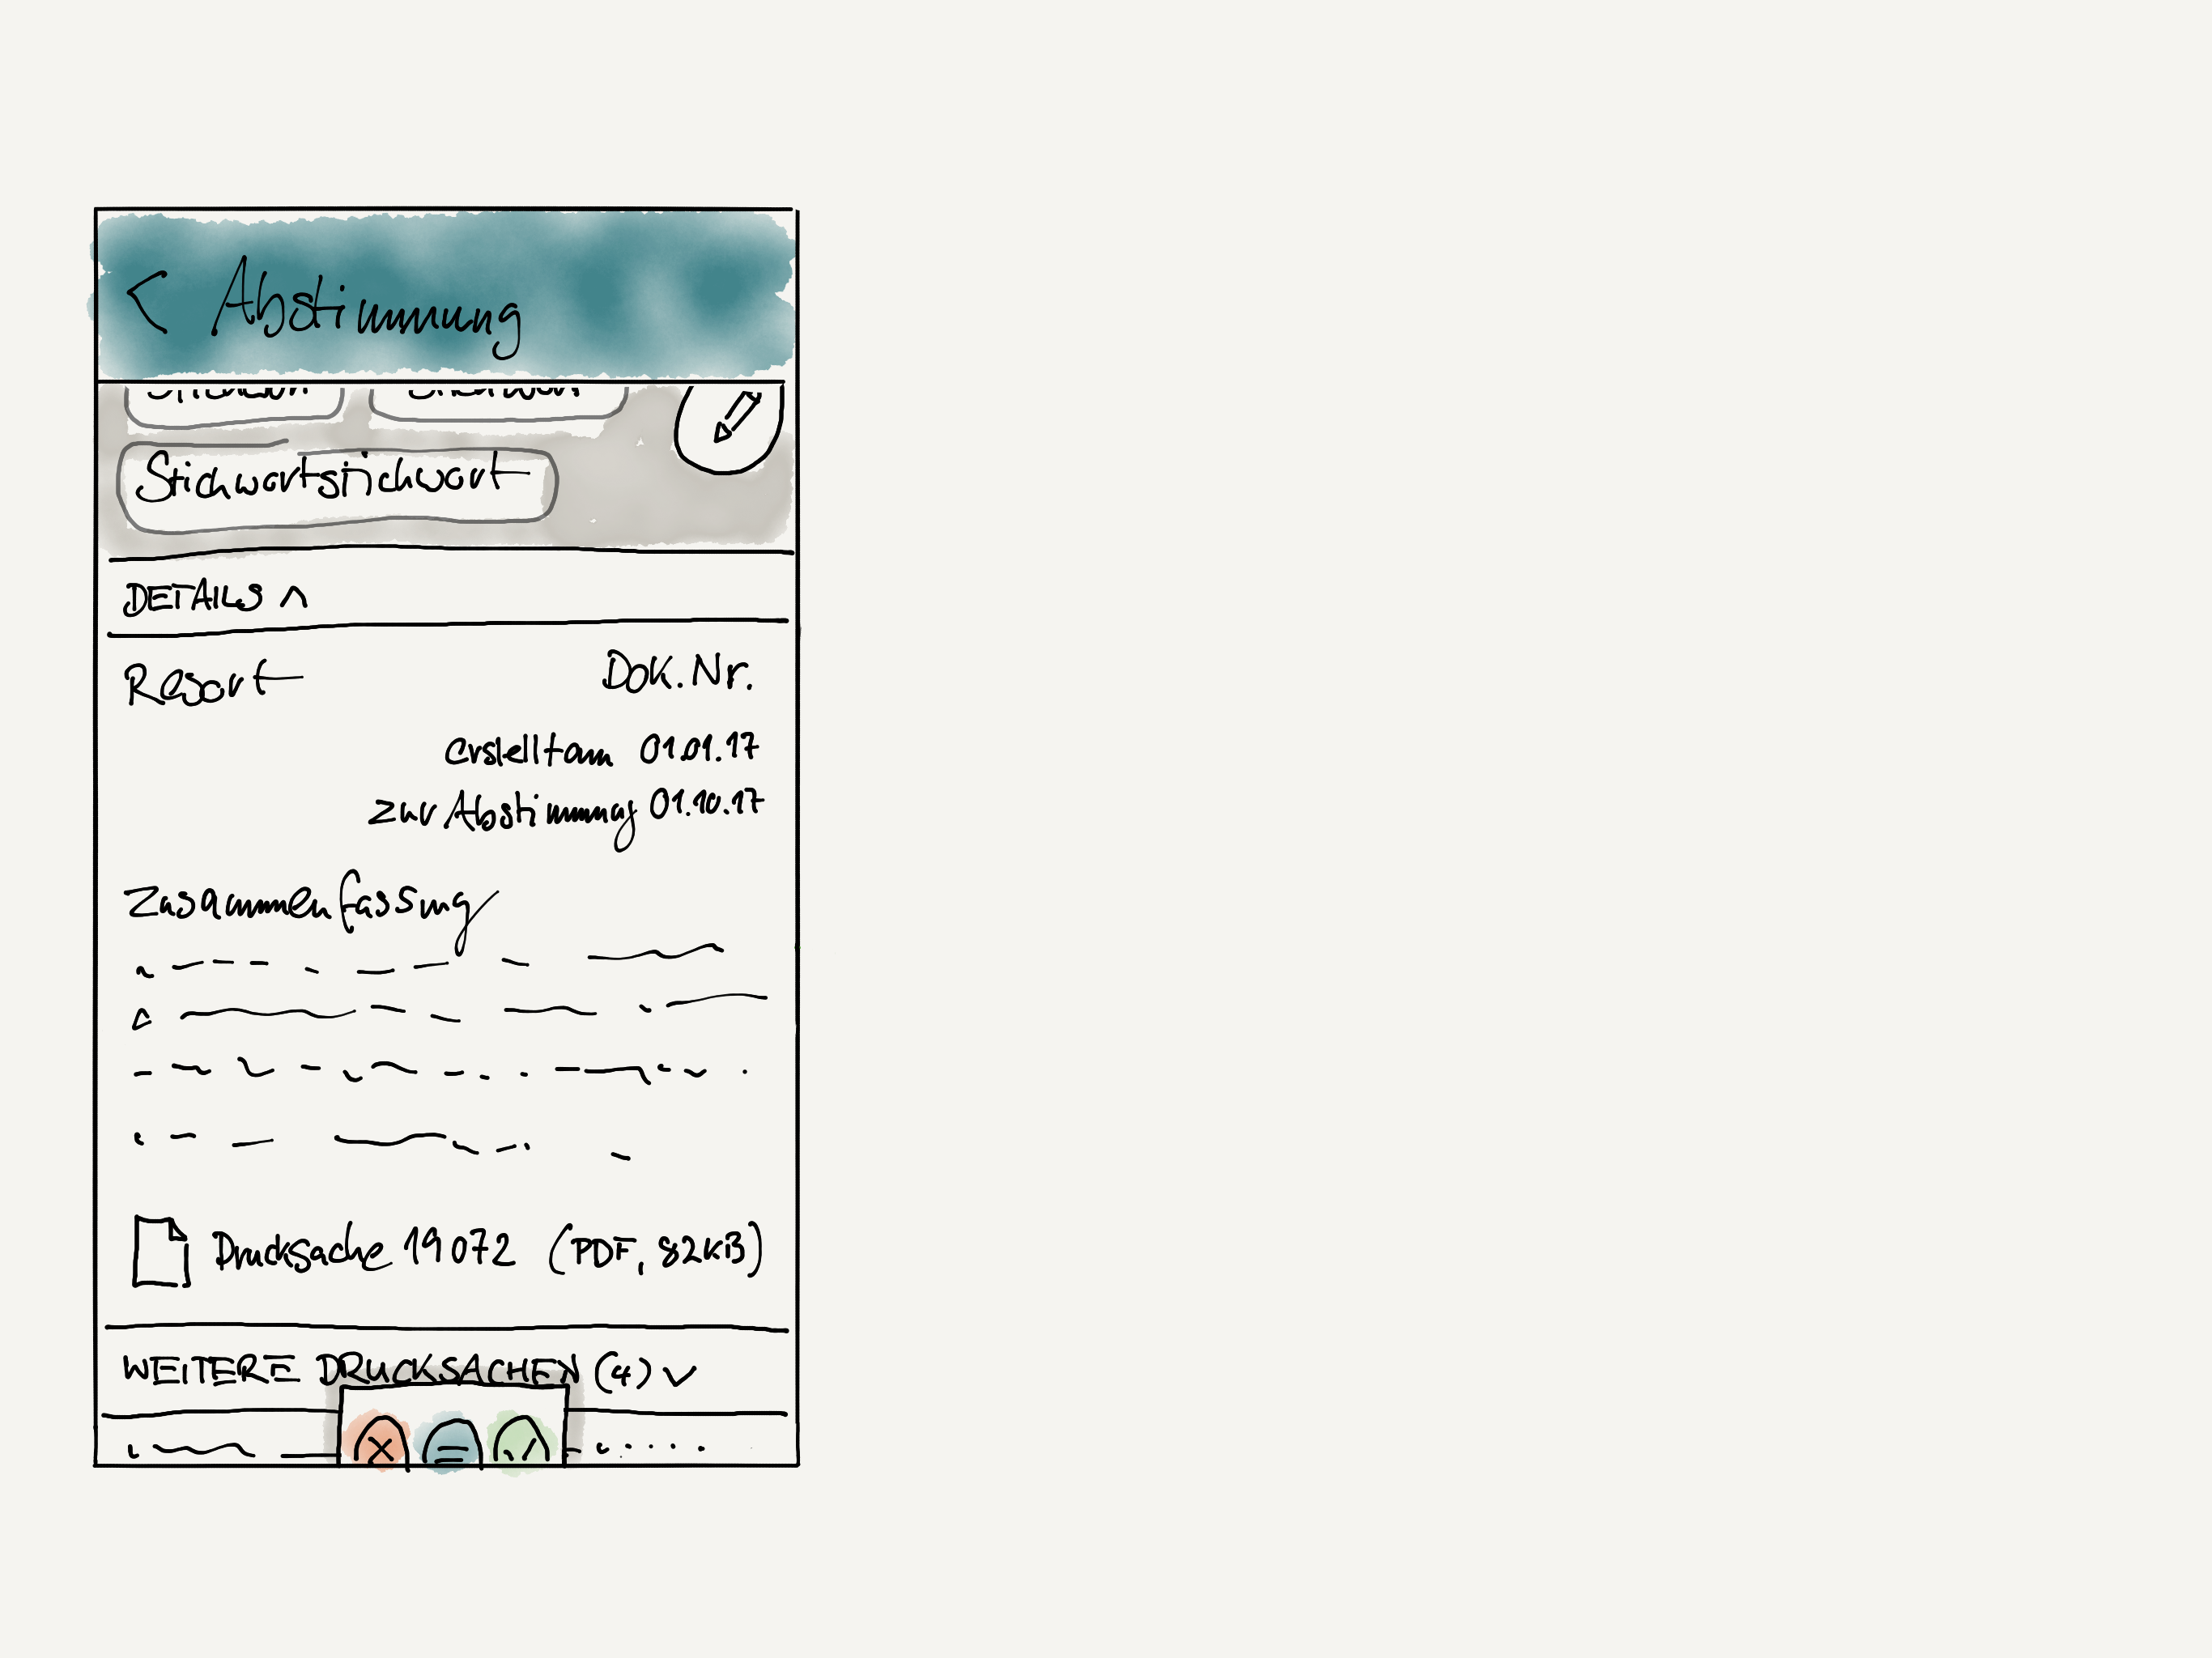 < Abstimmung
Stichwortstichwort
DETAILS ^
Resort Dok.Nr.
erstellt am 01.01.17
zur Abstimmung 01.10.17
Zusammenfassung
Drucksache 19072 (PDF, 82KB)
WEITERE DRUCKSACHEN (4) v